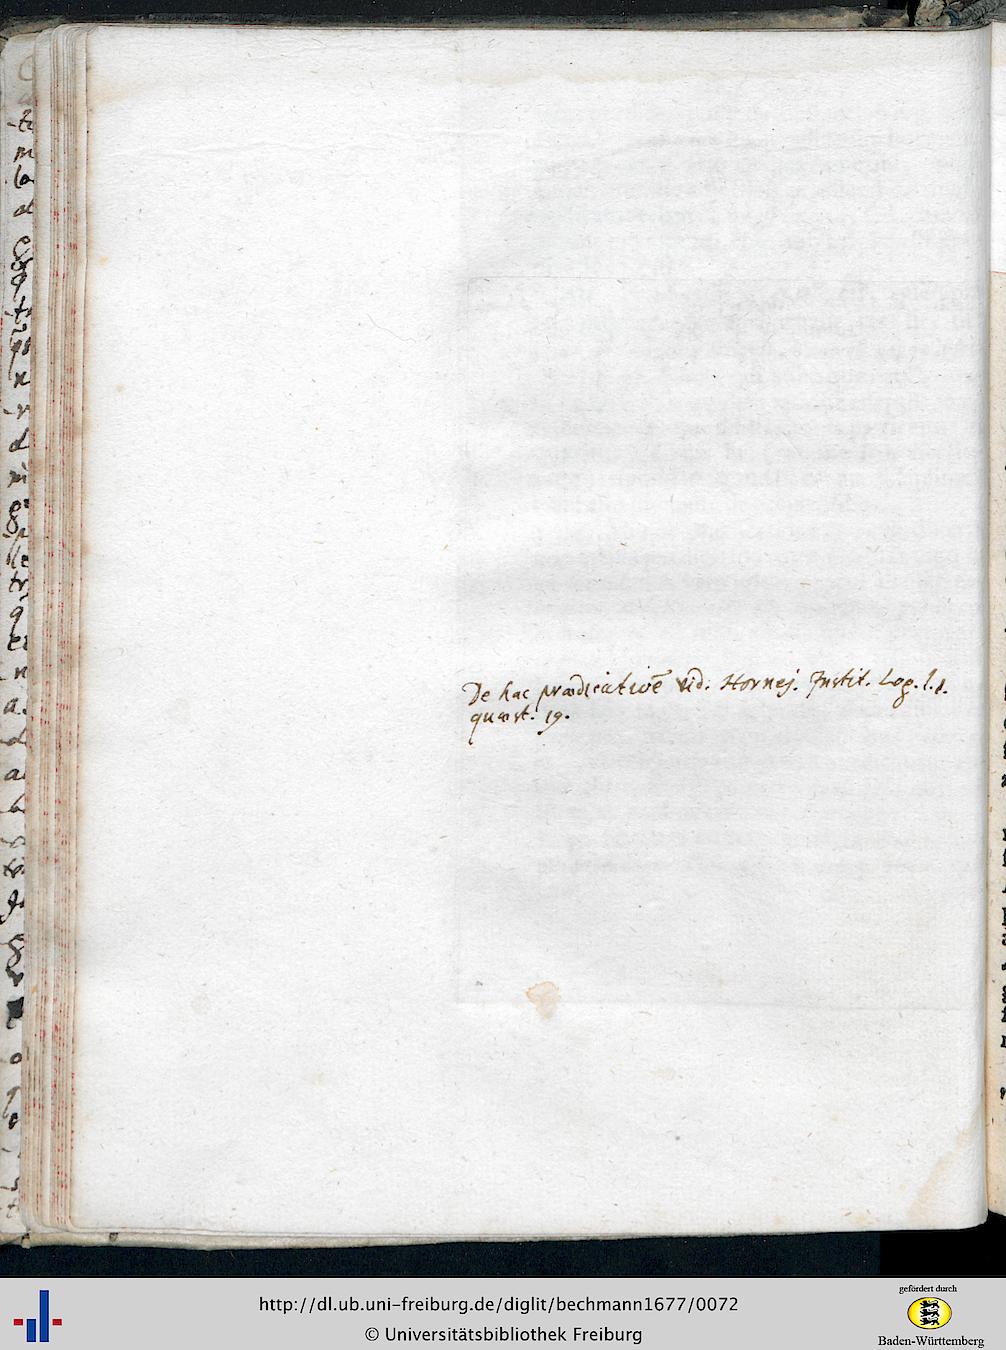 De hac prædicativē vid: Hornej. Instit. Log. l. 1.
quæst. 19.
http://dl.ub.uni-freiburg.de/diglit/bechmann1677/0072
© Universitätsbibliothek Freiburg
gefördert durch
Baden-Württemberg